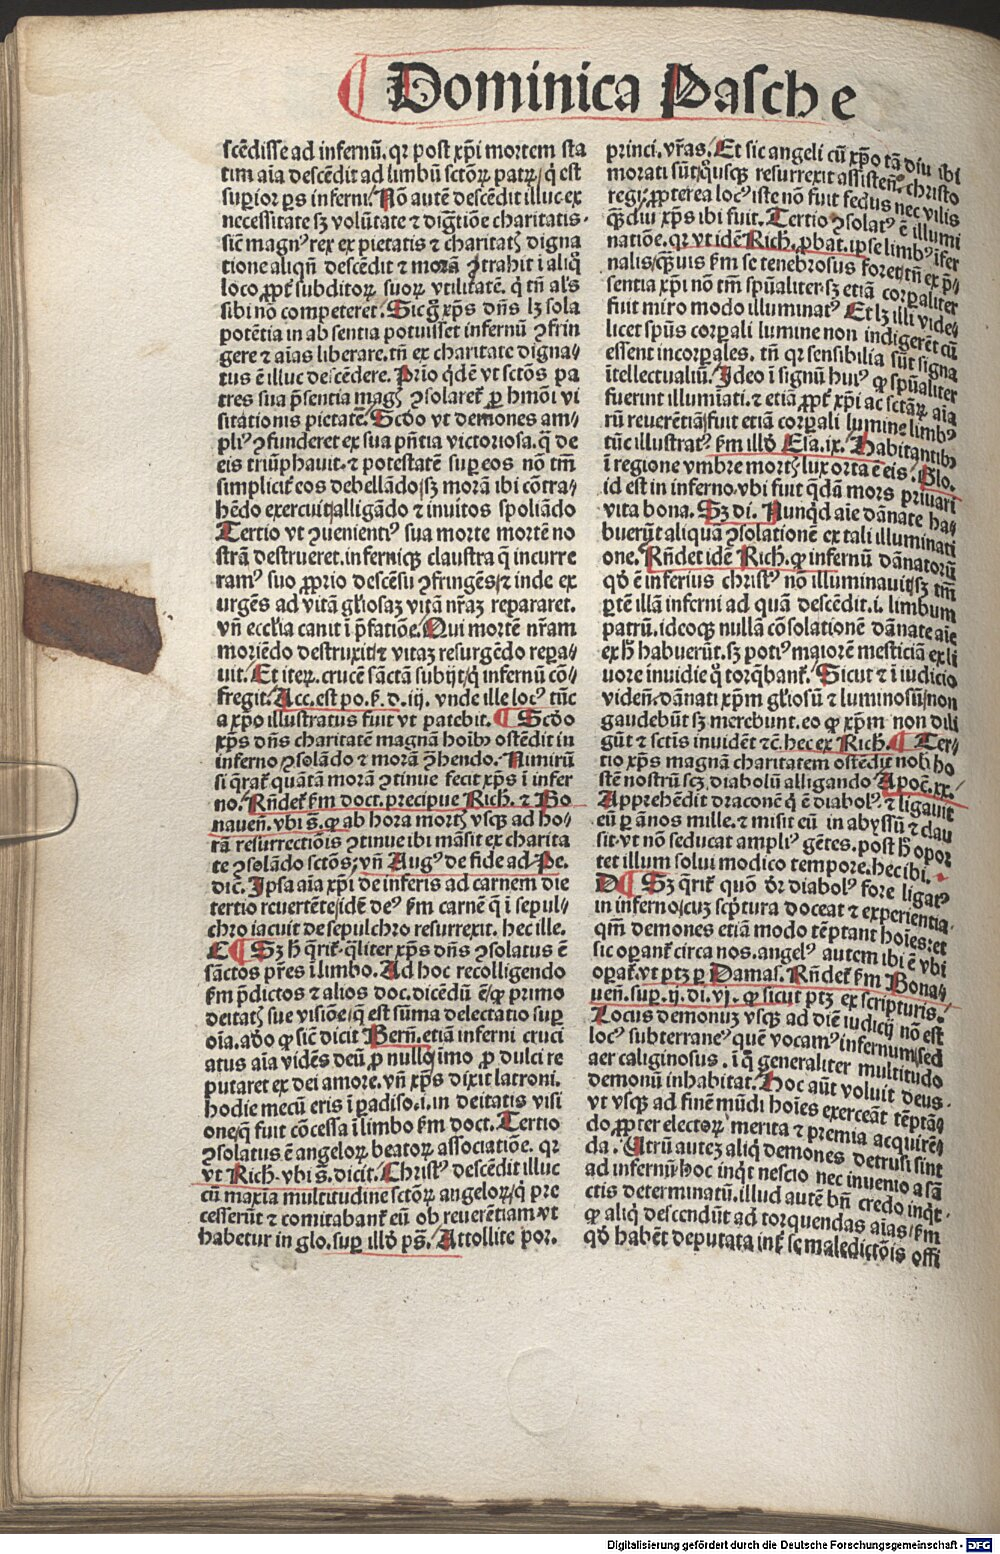 Dominica Pasche
scēdisse ad infernū. qr post xp̄i mortem sta
tim aīa descēdit ad limbū sctōꝝ patꝝ/ q̇ est
superior ps inferni. Nō autē descēdit illuc ex
necessitate sꝫ volūtate ⁊ diḡtiōe charitatis.
sic̄ magnꝰ rex ex pietatis ⁊ charitatꝭ digna
tione aliqn̄ descēdit ⁊ morā ꝯtrahit ī aliq̊
loco ꝓpt̄ subditoꝝ suoꝝ vtilitatē. q̄ tn̄ als̄
sibi nō competeret. Sic g̊ xp̄s dn̄s lꝫ sola
potētia in absentia potuisset infernū ꝯfrin
gere ⁊ aīas liberare. tn̄ ex charitate digna/
tus ē illuc descēdere. Prīo q̇dē vt sctōs pa
tres sua p̄sentia magꝭ ꝯsolaret̄ ꝑ hmōi vi
sitationis pietatē. Scd̄o vt demones am/
pliꝰ ꝯfunderet ex sua pn̄tia victoriosa. q̄ de
eis triūphauit. ⁊ potestatē super eos nō tm̄
simplicit̄ eos debellādo/ sꝫ morā ibi cōtra/
hēdo exercuit/ alligādo ⁊ inuitos spoliādo
Tertio vt ꝯuenientiꝰ sua morte mortē no
strā destrueret. infernicꝫ claustra q̄ incurre
ramꝰ suo ꝓprio descēsu ꝯfringēs/ ⁊ inde ex
urgēs ad vitā gl̄iosaꝫ vitā nr̄aꝫ repararet.
vn̄ eccl̄ia canit ī p̄fatiōe. Qui mortē nr̄am
moriēdo destruxit/ ⁊ vitaꝫ resurgēdo repa/
uit. Et iteꝝ. crucē sanctā subijt/ q̇ infernū cō/
fregit. Acc. est po. ꝭ. d. iij. vnde ille locꝰ tūc
a xp̄o illustratus fuit vt patebit. ¶ Scd̄o
xp̄s dn̄s charitatē magnā hoībꝫ ostēdit in
inferno ꝯsolādo ⁊ morā ꝯhendo. Nimirū
si q̄rat̄ quātā morā ꝯtinue fecit xp̄s ī infer
no. Rn̄det̄ ẜm doct. precipue Rich. ⁊ Bo
nauen̄. vbi s̄. ꝙ ab hora mortꝭ vsqꝫ ad ho/
rā resurrectiōis ꝯtinue ibi māsit ex charita
te ꝯsolādo sctōs; vn̄ Augꝰ de fide ad Pe.
dic̄. Ipsa aīa xp̄i de inferis ad carnem die
tertio reuertēte/ idē deꝰ ẜm carnē q̄ ī sepul/
chro iacuit de sepulchro resurrexit. hec ille.
E ¶ Sꝫ h̄ q̄rit̄. q̄liter xp̄s dn̄s ꝯsolatus ē
sāctos pr̄es ī limbo. Ad hoc recolligendo
ẜm p̄dictos ⁊ alios doc. dicēdū ē/ ꝙ primo
deitatꝭ sue visiōe/ q̄ est sūma delectatio sup̄
oīa. adō ꝙ sic̄ dicit Bern̄. etiā inferni cruci
atus aīa vidēs deū ꝓ nullo/ īmo ꝓ dulci re
putaret ex dei amore. vn̄ xp̄s dixit latroni.
hodie mecū eris ī paradiso. i. in deitatis visi
one/ q̄ fuit cōcessa ī limbo ẜm doct. Tertio
ꝯsolatus ē angeloꝝ beatoꝝ associatiōe. qr
vt Rich. vbi s̄. dicit. Christꝰ descēdit illuc
cū maxīa multitudine sctōꝝ angeloꝝ/ q̇ pre
cesserūt ⁊ comitabant̄ eū ob reuerētiam. vt
habetur in glo. suꝑ illd̄ ps̄. Attollite por.
princi. vr̄as. Et sic angeli cū xp̄o tā diu ibi
morati sūt/ q̊usqꝫ resurrexit assisten̄. christo
regi. ꝓpterea locꝰ iste nō fuit fedus nec vilis
q̄diu xp̄s ibi fuit. Tertio ꝯsolatꝰ ē illumi
natiōe. qr vt idē Rich. ꝓbat. ipse limbꝰ ifer
nalis/ q̄uis ẜm se tenebrosus foret/ tn̄ ex p̄/
sentia xp̄i nō tm̄ spūaliter. sꝫ etiā corꝑaliter
fuit miro modo illuminatꝰ Et lꝫ illi vide/
licet spūs corꝑali lumine non indigerēt cū
essent incorꝑales. tn̄ qr sensibilia sūt signa
ītellectualiū. Ideo ī signū huiꝰ ꝙ spūaliter
fuerint illumīati. ⁊ etiā ꝓpt̄ xp̄i ac sctāꝝ aīa
rū reuerētiā/ fuit etiā corꝑali lumine limbꝰ
tūc illustratꝰ ẜm illd̄ Esa. ix. Habitantibꝫ
ī regione vmbre mortꝭ lux orta ē eis. Glo.
id est in inferno. vbi fuit q̄dā mors priuari
vita bona. Sꝫ di. Nunq̇d aīe dānate ha/
buerūt aliquā ꝯsolationē ex tali illuminati
one. Rn̄det idē Rich. ꝙ infernū dānatorū
qd̄ ē inferius christꝰ nō illuminauit/ sꝫ tm̄
ꝑtē illā inferni ad quā descēdit. i. limbum
patrū. idcoqꝫ nullā cōsolationē dānate aīe
ex h̄ habuerūt. sꝫ potiꝰ maiorē mesticiā ex li
uore inuidie q̊ torq̄bant̄. Sicut ⁊ ī iudicio
viden̄. dānati xp̄m gl̄iosū ⁊ luminosū/ non
gaudebūt sꝫ merebunt. eo ꝙ xp̄m non dili
gūt ⁊ sctis̄ inuidēt ⁊c̄. hec ex Rich. ¶ Ter/
tio xp̄s magnā charitatem ostēdit nob̄ ho
stē nostrū scꝫ diabolū alligando Apoc̄. xx.
Apprehēdit draconē q̇ ē diabolꝰ. ⁊ ligauit
eū ꝑ ānos mille. ⁊ misit eū in abyssū ⁊ clau
sit. vt nō seducat ampliꝰ gētes. post h̄ opor
tet illum solui modico tempore. hec ibi.
D ¶ Sꝫ q̄rit̄ quō dr̄ diabolꝰ fore ligatꝰ
in inferno/ cuꝫ scp̄tura doceat ⁊ experientia.
qm̄ demones etiā modo tēptant hoīes: et
sic oꝑant̄ circa nos. angelꝰ autem ibi ē vbi
oꝑat̄. vt ptꝫ ꝑ Damas. Rn̄det̄ ẜm Bona/
uen̄. suꝑ. ij. di. vj. ꝙ sicut ptꝫ ex scripturis.
Locus demonuꝫ vsqꝫ ad diē iudicij nō est
locꝰ subterraneꝰ quē vocamꝰ infernum/ sed
aer caliginosus. ī q̊ generaliter multitudo
demonū inhabitat. Hoc aūt voluit deus.
vt vsqꝫ ad finē mūdi hoīes exerceāt tēptā/
do ꝓpter electoꝝ merita ⁊ premia acquirē/
da. Utrū auteꝫ aliq̇ demones detrusi sint
ad infernū/ hoc inq̇t nescio nec inuenio a sā
ctis determinatū. illud autē bn̄ credo inq̇t.
ꝙ aliq̇ descendūt ad torquendas aīas/ ẜm
qd̄ habēt deputata int̄ se maledictōis offi
Digitalisierung gefördert durch die Deutsche Forschungsgemeinschaft - DFG